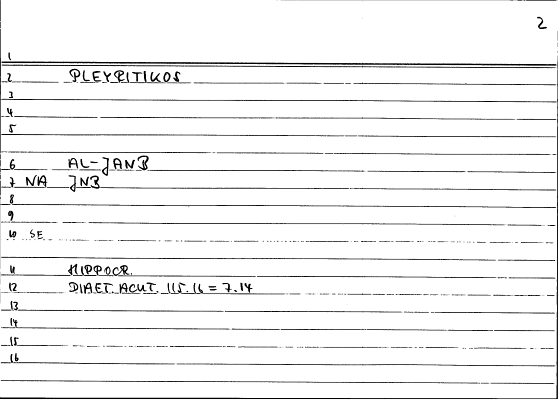 2
1
2 PLEYRITIKOS
3
4
5
6 AL-JANB
7 NA JNB
8
9
10 SE
11 HIPPOCR.
12 DIAET. ACUT. 115.16 = 7.14
13
14
15
16